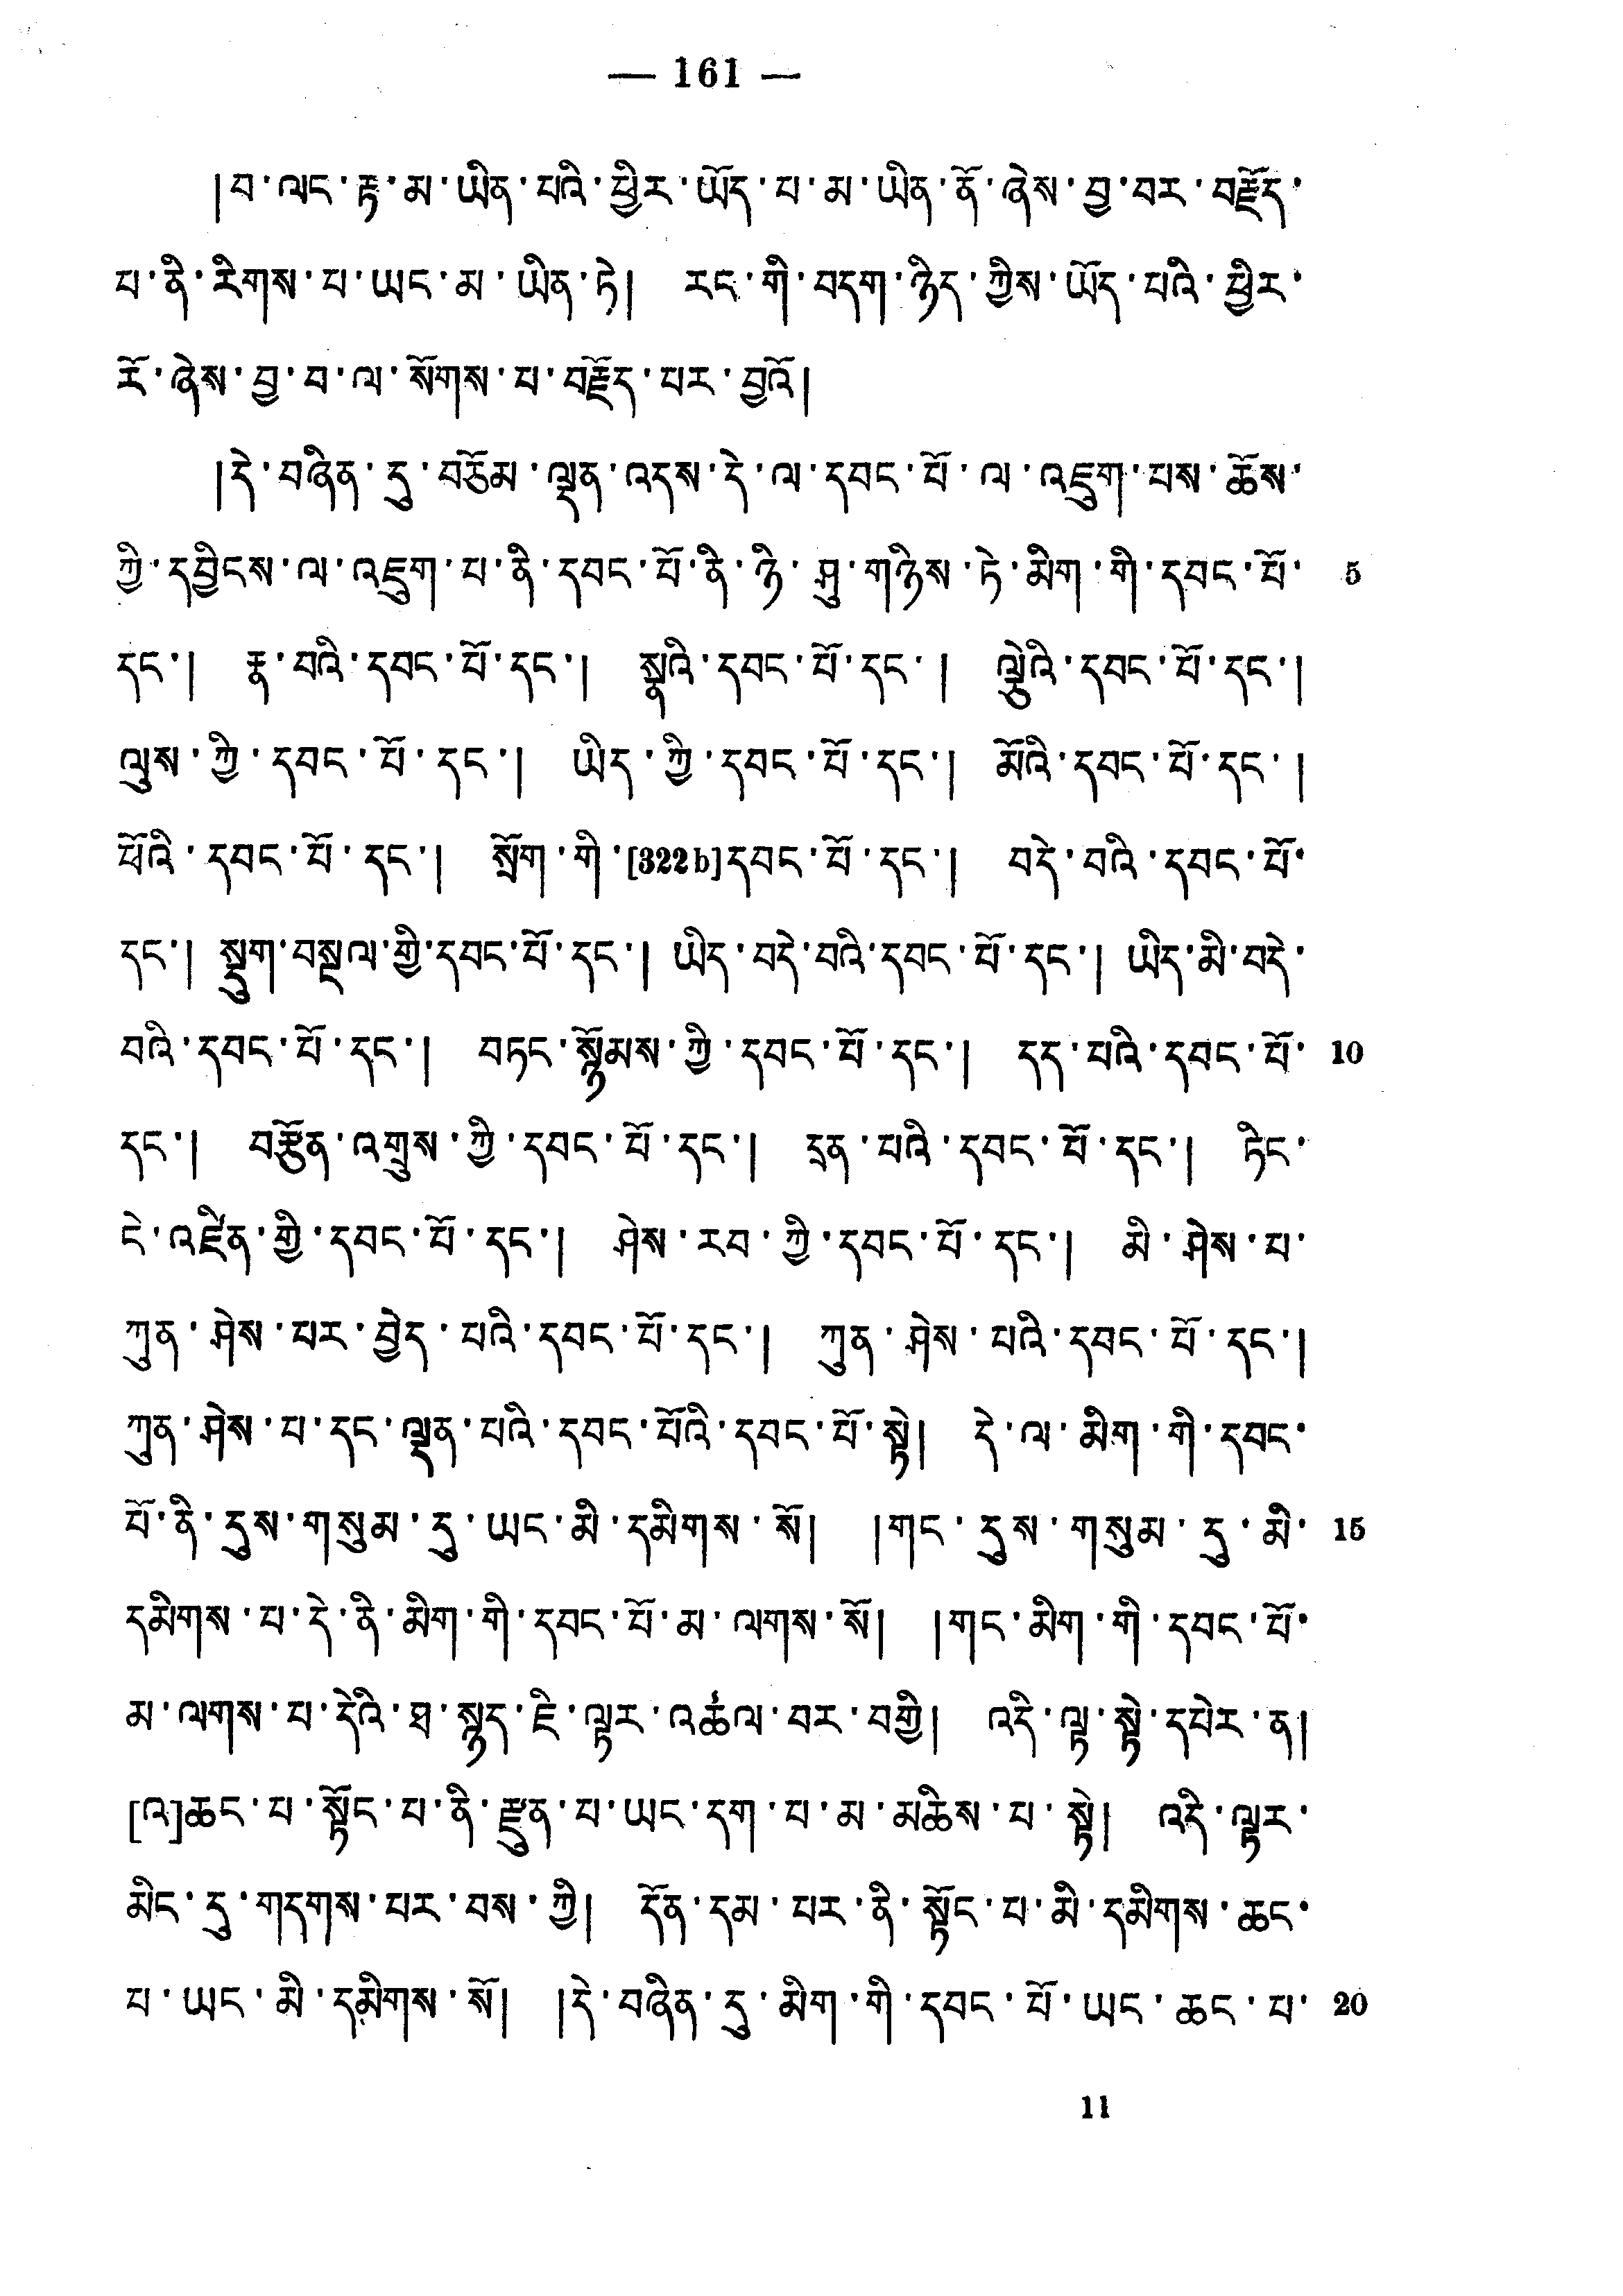 — 161 —
།བ་ལང་རྟ་མ་ཡིན་པའི་ཕྱིར་ཡོད་པ་མ་ཡིན་ནོ་ཞེས་བྱ་བར་བརྗོད་
པ་ནི་རིགས་པ་ཡང་མ་ཡིན་ཏེ། རང་གི་བདག་ཉིད་ཀྱིས་ཡོད་པའི་ཕྱིར་
རོ་ཞེས་བྱ་བ་ལ་སོགས་པ་བརྗོད་པར་བྱའོ།
།དེ་བཞིན་དུ་བཅོམ་ལྡན་འདས་དེ་ལ་དབང་པོ་ལ་འཇུག་པས་ཆོས་
ཀྱི་དབྱིངས་ལ་འཇུག་པ་ནི་དབང་པོ་ནི་ཉི་ཤུ་གཉིས་ཏེ་མིག་གི་དབང་པོ་ 5
དང་། རྣ་བའི་དབང་པོ་དང་། སྣའི་དབང་པོ་དང་། ལྕེའི་དབང་པོ་དང་།
ལུས་ཀྱི་དབང་པོ་དང་། ཡིད་ཀྱི་དབང་པོ་དང་། མོའི་དབང་པོ་དང་།
ཕོའི་དབང་པོ་དང་། སྲོག་གི་[322b]དབང་པོ་དང་། བདེ་བའི་དབང་པོ་
དང་། སྡུག་བསྔལ་གྱི་དབང་པོ་དང་། ཡིད་བདེ་བའི་དབང་པོ་དང་། ཡིད་མི་བདེ་
བའི་དབང་པོ་དང་། བཏང་སྙོམས་ཀྱི་དབང་པོ་དང་། དད་པའི་དབང་པོ་ 10
དང་། བརྩོན་འགྲུས་ཀྱི་དབང་པོ་དང་། དྲན་པའི་དབང་པོ་དང་། ཏིང་
ངེ་འཛིན་གྱི་དབང་པོ་དང་། ཤེས་རབ་ཀྱི་དབང་པོ་དང་། མི་ཤེས་པ་
ཀུན་ཤེས་པར་བྱེད་པའི་དབང་པོ་དང་། ཀུན་ཤེས་པའི་དབང་པོ་དང་།
ཀུན་ཤེས་པ་དང་ལྡན་པའི་དབང་པོའི་དབང་པོ་སྟེ། དེ་ལ་མིག་གི་དབང་
པོ་ནི་དུས་གསུམ་དུ་ཡང་མི་དམིགས་སོ། །གང་དུས་གསུམ་དུ་མི་ 15
དམིགས་པ་དེ་ནི་མིག་གི་དབང་པོ་མ་ལགས་སོ། །གང་མིག་གི་དབང་པོ་
མ་ལགས་པ་དེའི་ཐ་སྙད་ཇི་ལྟར་འཚལ་བར་བགྱི། འདི་ལྟ་སྟེ་དཔེར་ན།
[འ]ཆང་པ་སྟོང་པ་ནི་རྫུན་པ་ཡང་དག་པ་མ་མཆིས་པ་སྟེ། འདི་ལྟར་
མིང་དུ་གདགས་པར་བས་ཀྱི། དོན་དམ་པར་ནི་སྟོང་པ་མི་དམིགས་ཆང་
པ་ཡང་མི་དམིགས་སོ། །དེ་བཞིན་དུ་མིག་གི་དབང་པོ་ཡང་ཆང་པ་ 20
11